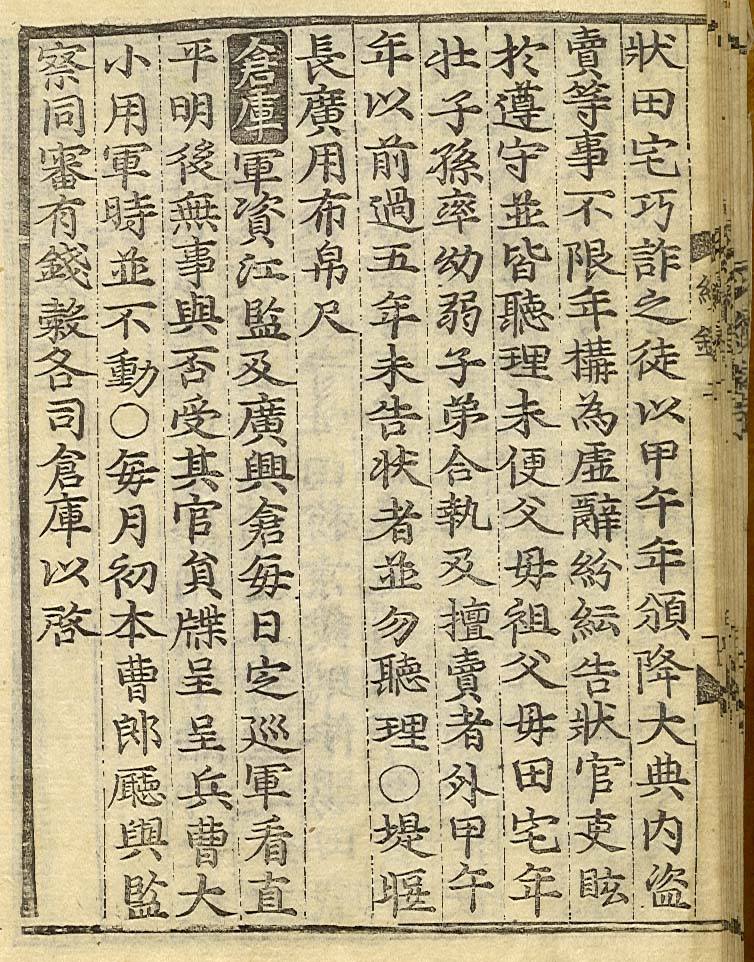 狀田宅巧詐之徒以甲午年頒降大典內盜
賣等事不限年構為虛辭紛紜告狀官吏眩
於遵守並皆聽理未便父母祖父母田宅年
壯子孫率幼弱子弟合執及擅賣者外甲午
年以前過五年未告狀者並勿聽理○堤堰
長廣用布帛尺
倉庫軍資江監及廣興倉每日定巡軍看直
平明後無事與否受其官貟牒呈呈兵曹大
小用軍時並不動○每月初本曹郎廳與監
察同審有錢糓各司倉庫以啓